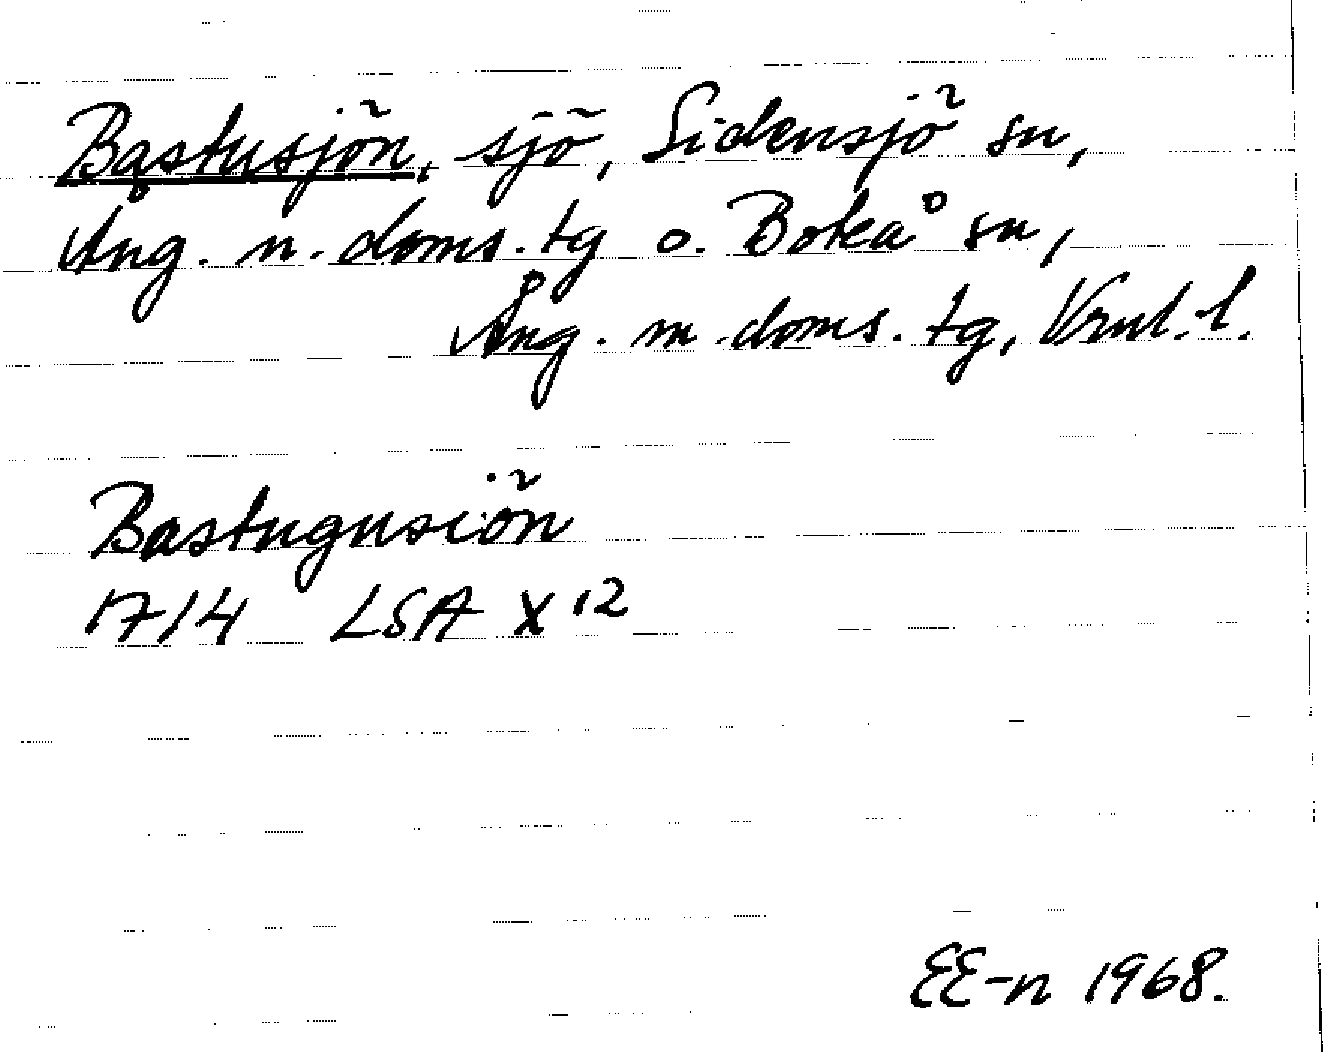 Bastusjön, sjö, Sidensjö sn,
Ång. n. doms. tg o. Boteå sn,
Ång. m. doms. tg, Vrnl. l.
Bastugusiön
1714 LSA X 12
EE-n 1968.